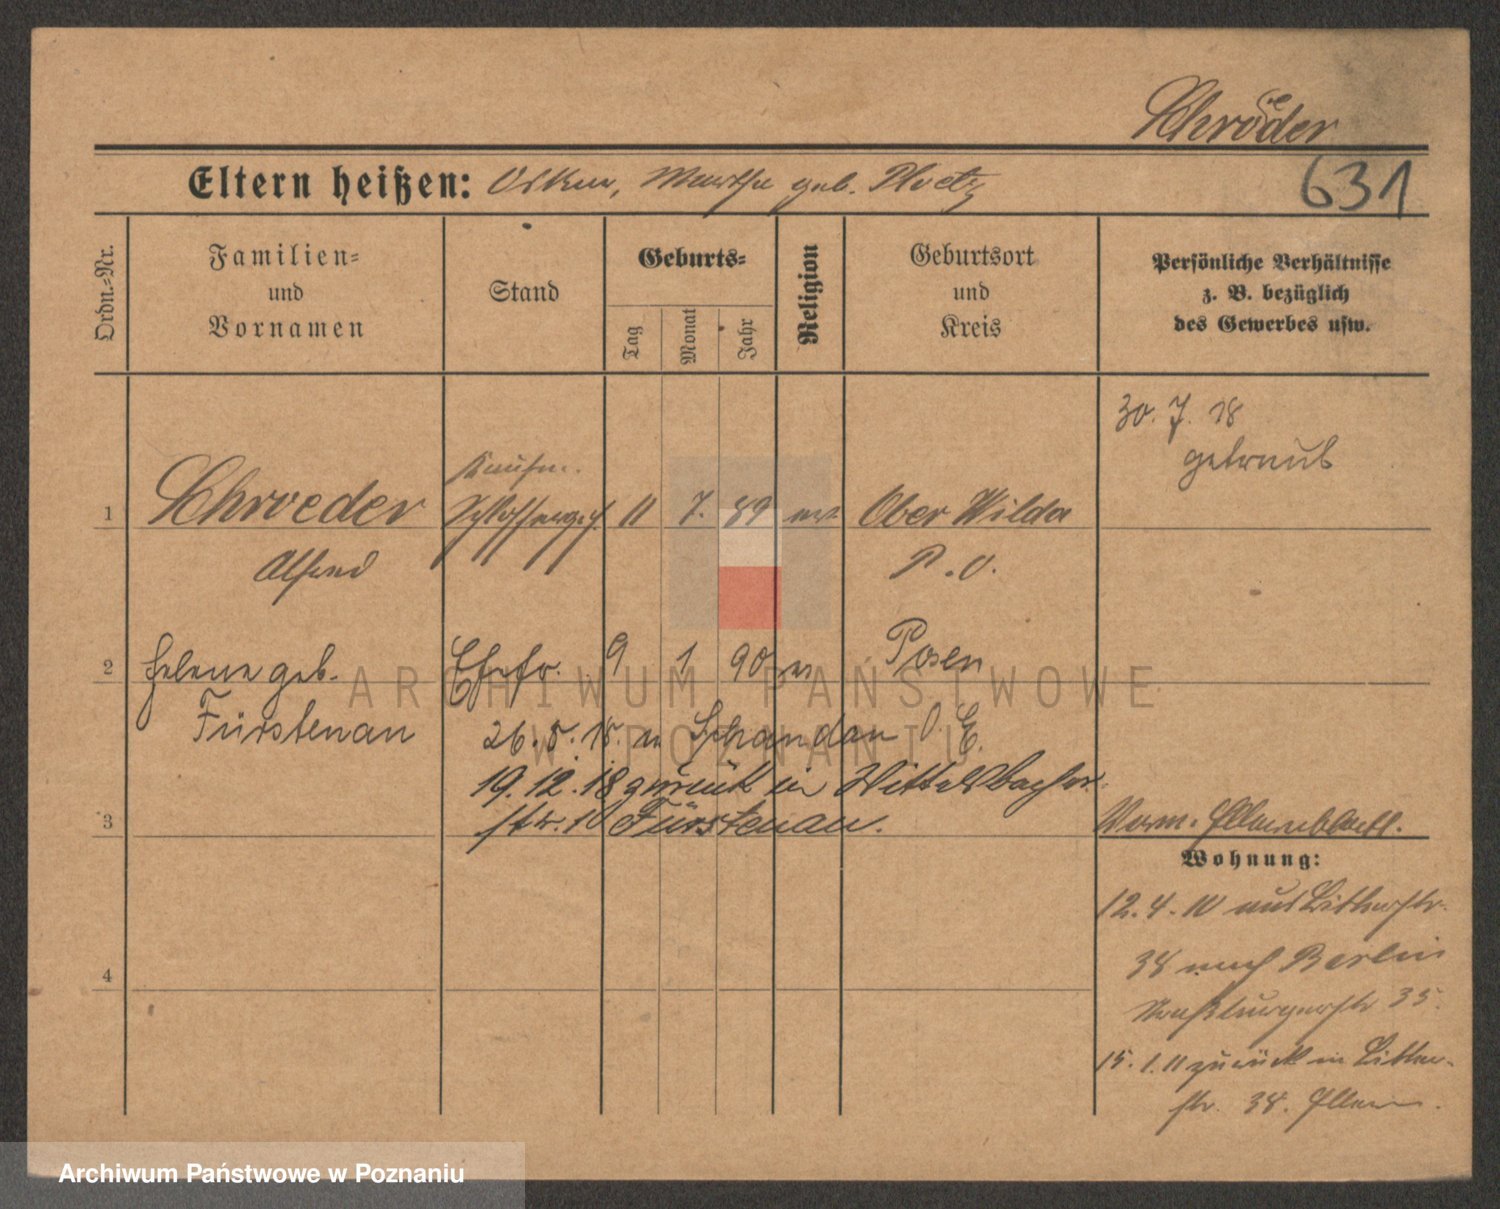 Schröder
Eltern heißen: Oskar, Martha geb. Ploetz
631
Ordn.-Nr.
Familien-
und
Vornamen
Stand
Geburts-
Tag
Monat
Jahr
Religion
Geburtsort
und
Kreis
Persönliche Verhältnisse
z. B. bezüglich
des Gewerbes usw.
30. 7. 18
getraut
Kaufm.
1 Schroeder Schlosserges. 11 7. 89 ev. Ober Wilda
Alfred P. O.
2 Helene geb. Ehefr. 9 1 90 ev Posen
Fürstenau
26. 5. 15. n Schandau
19. 12. 18 zurück in Wittelsbacher
str. 10 Fürstenau.
3
Wohnung:
12. 4. 10 aus Bitterstr.
38 nach Berlin
Straßburgerstr 35.
15. 1. 11 zurück in Bitter-
str. 38. Eltern.
4
ARCHIWUM PAŃSTWOWE
W POZNANIU
Archiwum Państwowe w Poznaniu